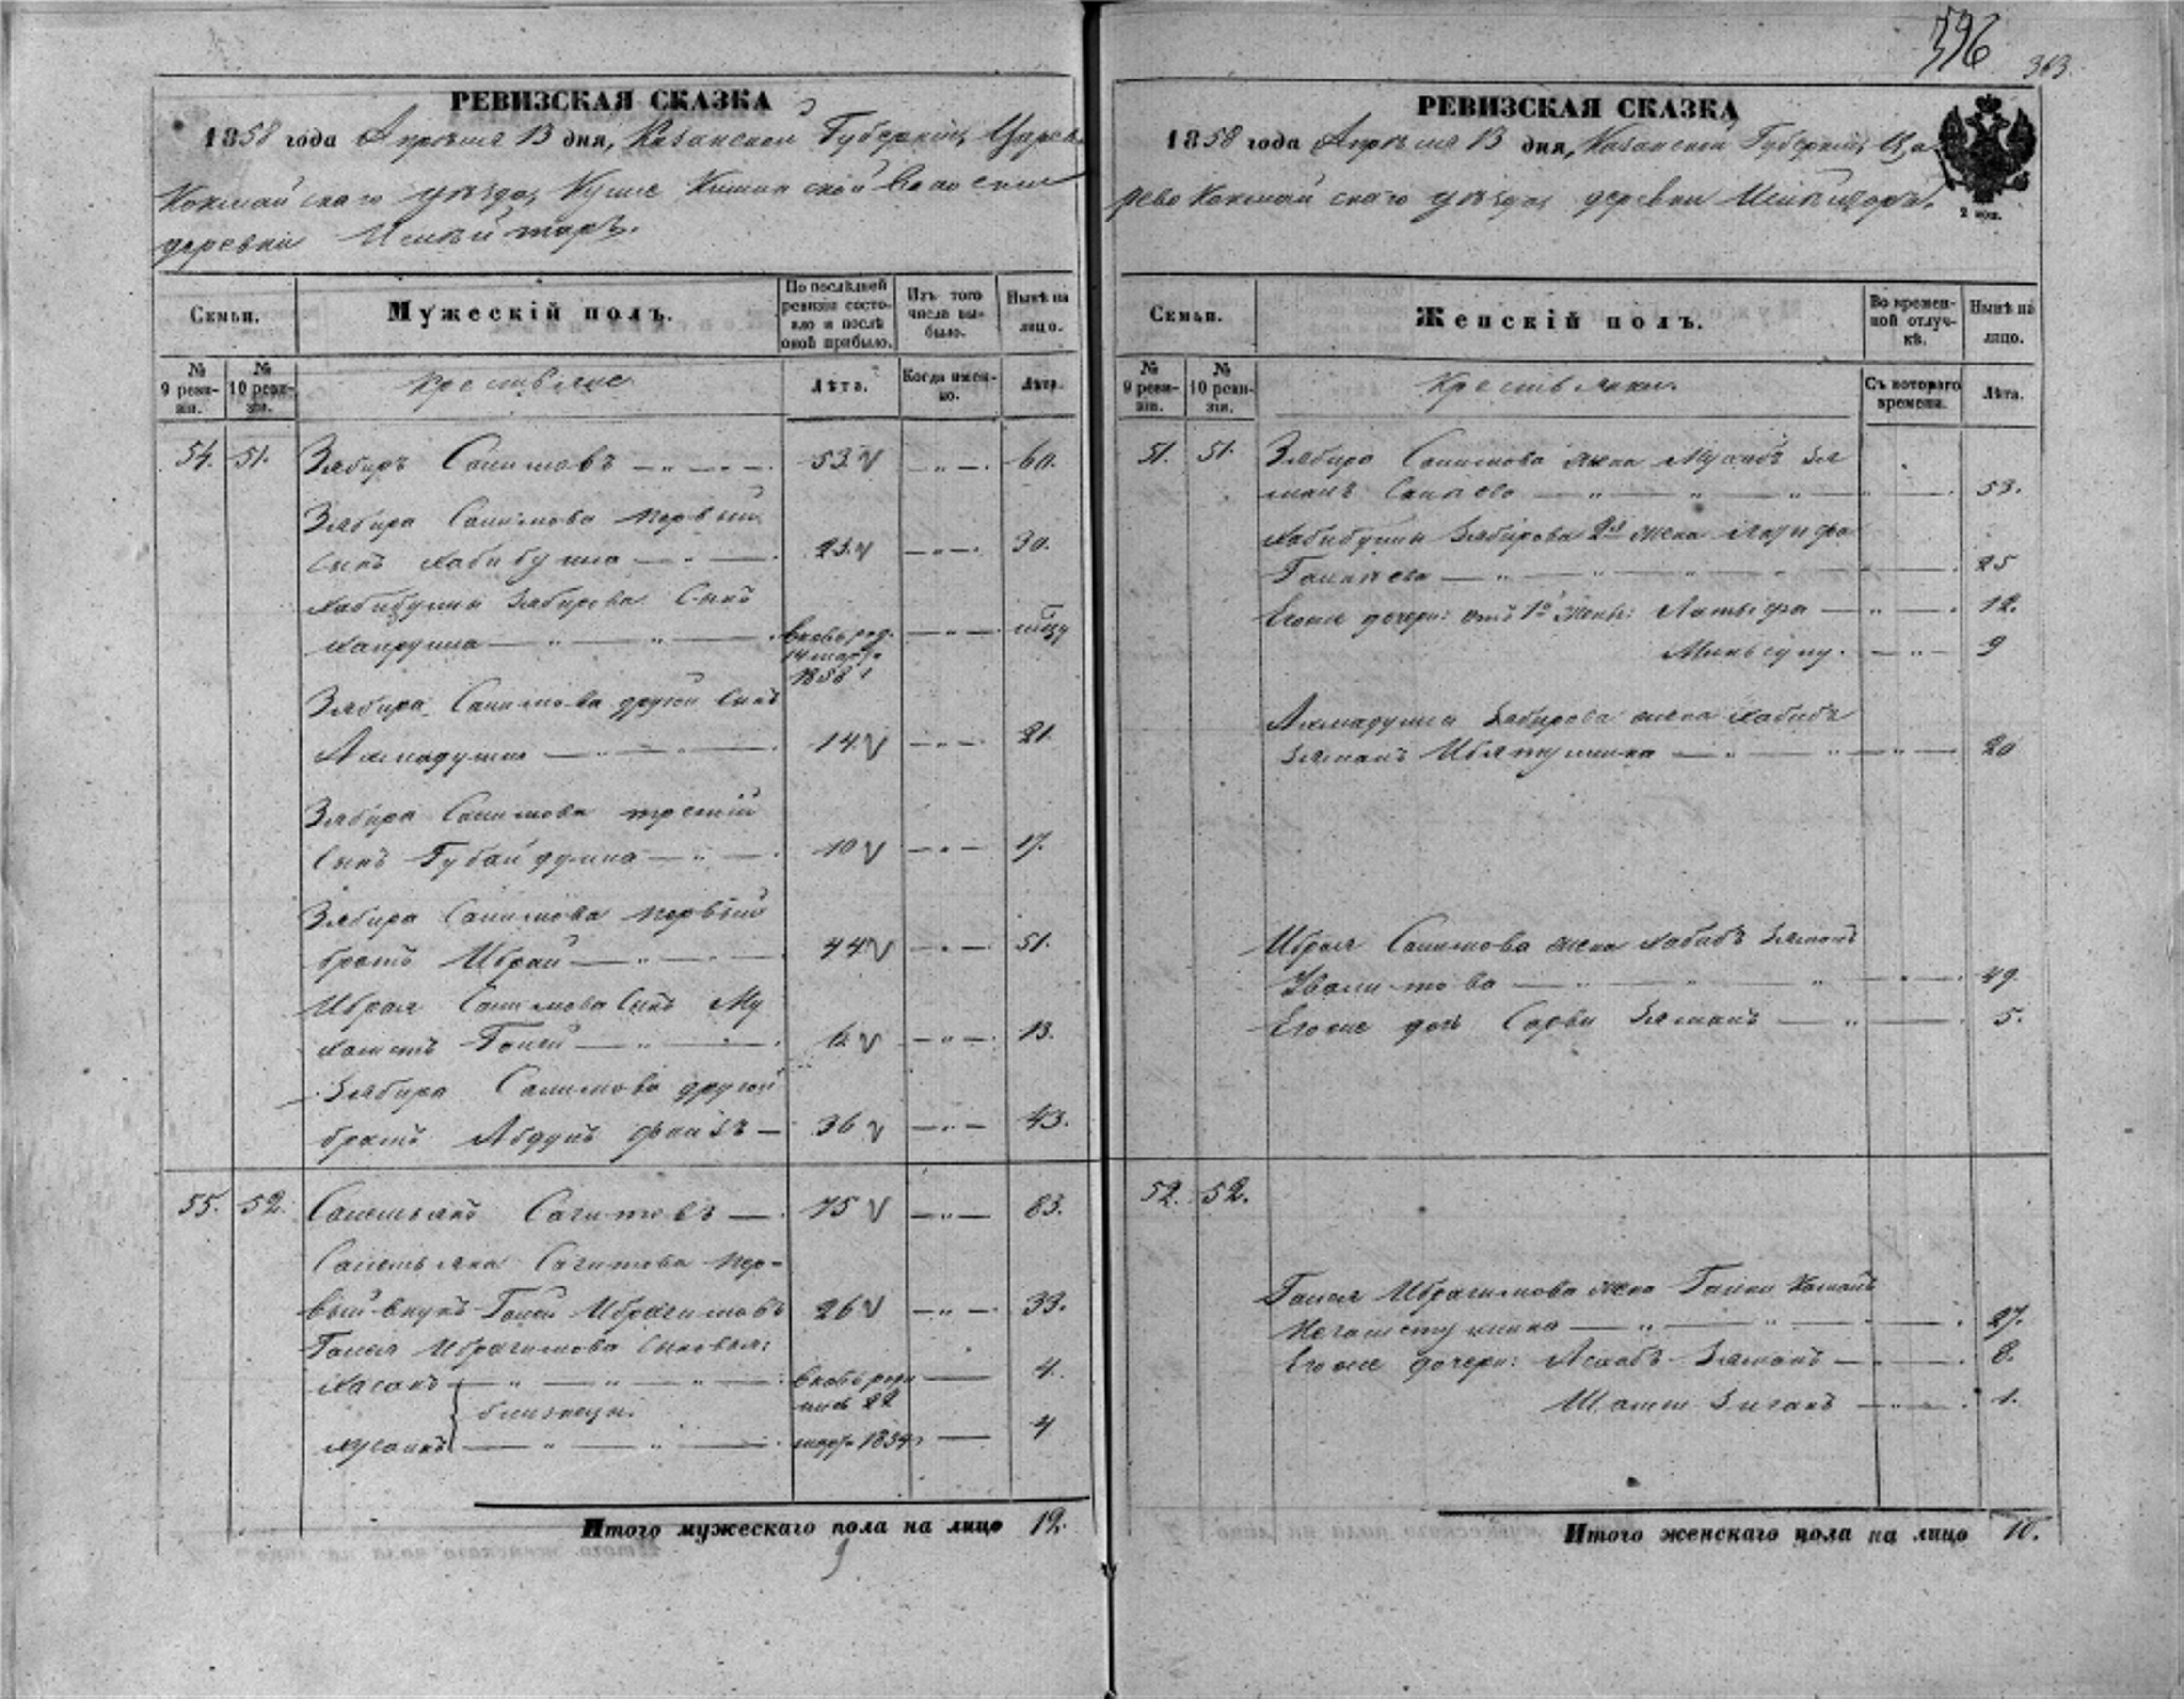 596
363.
РЕВИЗСКАЯ СКАЗКА
1858 года Апреля 13 дня, Казанской Губерніи, Царево
Кокшайскаго уезда,
деревни
Семьи.
Мужескій полъ.
По послѣдней ревизіи состояло и послѣ оной прибыло.
Изъ того числа выбыло.
Нынѣ на лицо.
№ 9 ревизіи.
№ 10 ревизіи.
Крестьяне
Лѣта.
Когда именно.
Лѣта.
54. 51. Зябиръ Салимовъ — „ — 53 — „ — 60.
Зябира Салимова первый
сынъ Хабибулла — „ — 23 — „ — 30.
Хабибуллы Зябирова Сынъ
вновь род. — „ —
14 марта
1858
Зябира Салимова другой Сынъ
Ахмадулла — „ — 14 — „ — 21.
Зябира Салимова третій
Сынъ Губайдулла — „ — 10 — „ — 17.
Зябира Салимова первый
братъ Ибрай — „ — 44 — „ — 51.
Ибрая Салимова Сынъ Му
хаметъ Галей — „ — 6 — „ — 13.
Зябира Салимова другой
братъ Абдулъ Фаизъ — 36 — „ — 43.
55. 52. Сагитовъ — 75 — „ — 83.
Сагитова пер=
вый внукъ Галей Ибрагимовъ 26 — „ — 33.
Галея Ибрагимова сыновья:
Хасанъ — „ — „ — „ — вновь роди — 4.
близнецы лись 22
Хусаинъ — „ — „ — марта 1854 — 4
Итого мужескаго пола на лицо 12.
РЕВИЗСКАЯ СКАЗКА
1858 года Апреля 13 дня, Казанской Губерніи, Ца
рево Кокшайскаго уезда, деревни
2 коп.
Семьи.
Женскій полъ.
Во временной отлучкѣ.
Нынѣ на лицо.
№ 9 ревизіи.
№ 10 ревизіи.
Крестьянки.
Съ котораго времени.
Лѣта.
51. 51. Зябира Салимова жена
53.
Хабибуллы Зябирова 2я жена
25
Егоже дочери: отъ 1й жены: Латыфа — „ — 12.
— „ — 9
Ахмадуллы Зябирова жена Хабибъ
Зяманъ — „ — „ — 20
Ибрая Салимова жена Хабибъ Зяманъ
49.
Егоже дочь Сарви Зяманъ — „ — 5.
52. 52.
Галея Ибрагимова жена
27.
Егоже дочери: Зяманъ — 8.
— „ — 1.
Итого женскаго пола на лицо 10.